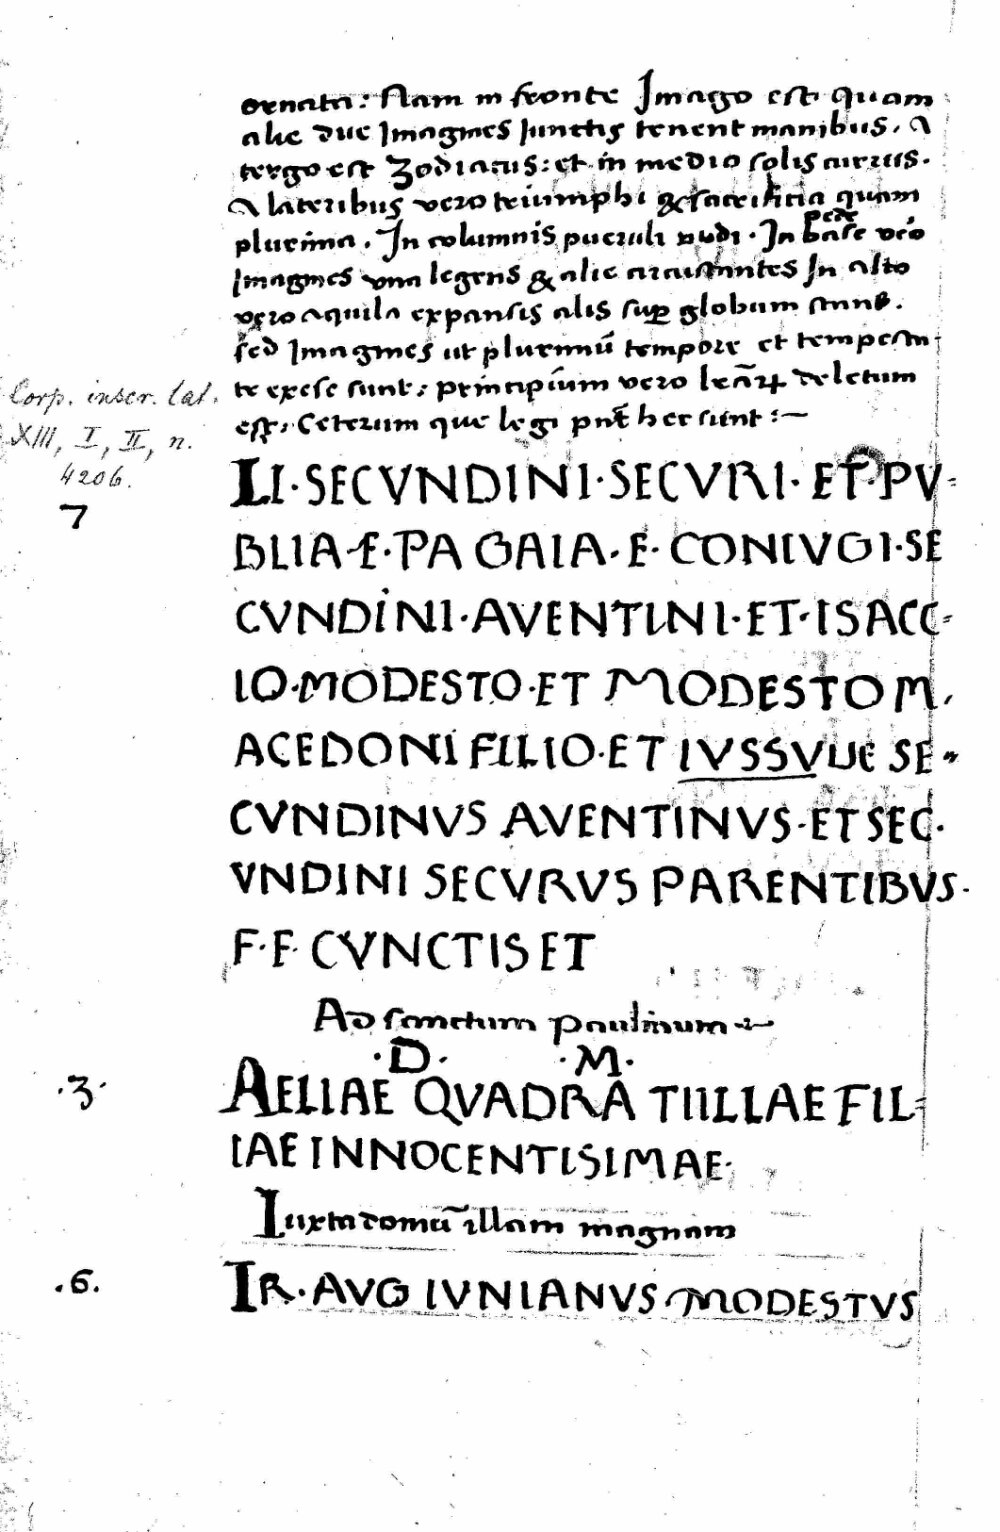 ornata: Nam in fronte Imago est quam
alie due Imagines Iunctis tenent manibus. A
tergo est Zodiacus: et in medio solis currus.
A lateribus vero triumphi & sacrificia quam
plurima. In columnis pueruli nudi. In base vero
pede
Imagines una legens & alie arcustantes In alto
vero aquila expansis alis sup globum stans.
sed Imagines ut plurimū tempore et tempesta
te exese sunt: principium vero deletum
est. Ceterum que legi pnt hec sunt:—
Corp. inser. lat.
XIII, I, II, n.
4206.
7
LI·SECVNDINI·SECVRI·ET·PV-
BLIA·F·PA GAIA·F·CONIVGI·SE
CVNDINI·AVENTINI·ET·ISACC-
IO·MODESTO·ET MODESTO M,
ACEDONI FILIO·ET IVSSVUE SE-
CVNDINVS AVENTINVS·ET SEC·
VNDINI SECVRVS PARENTIBVS·
F·F· CVNCTIS ET
Ad sanctum paulinum
·D· ·M·
·3·
AELIAE QVADRA TIILLAE FIL-
IAE INNOCENTISIMAE·
Iuxta domū illam magnam
.6.
IR·AVG IVNIANVS MODESTVS